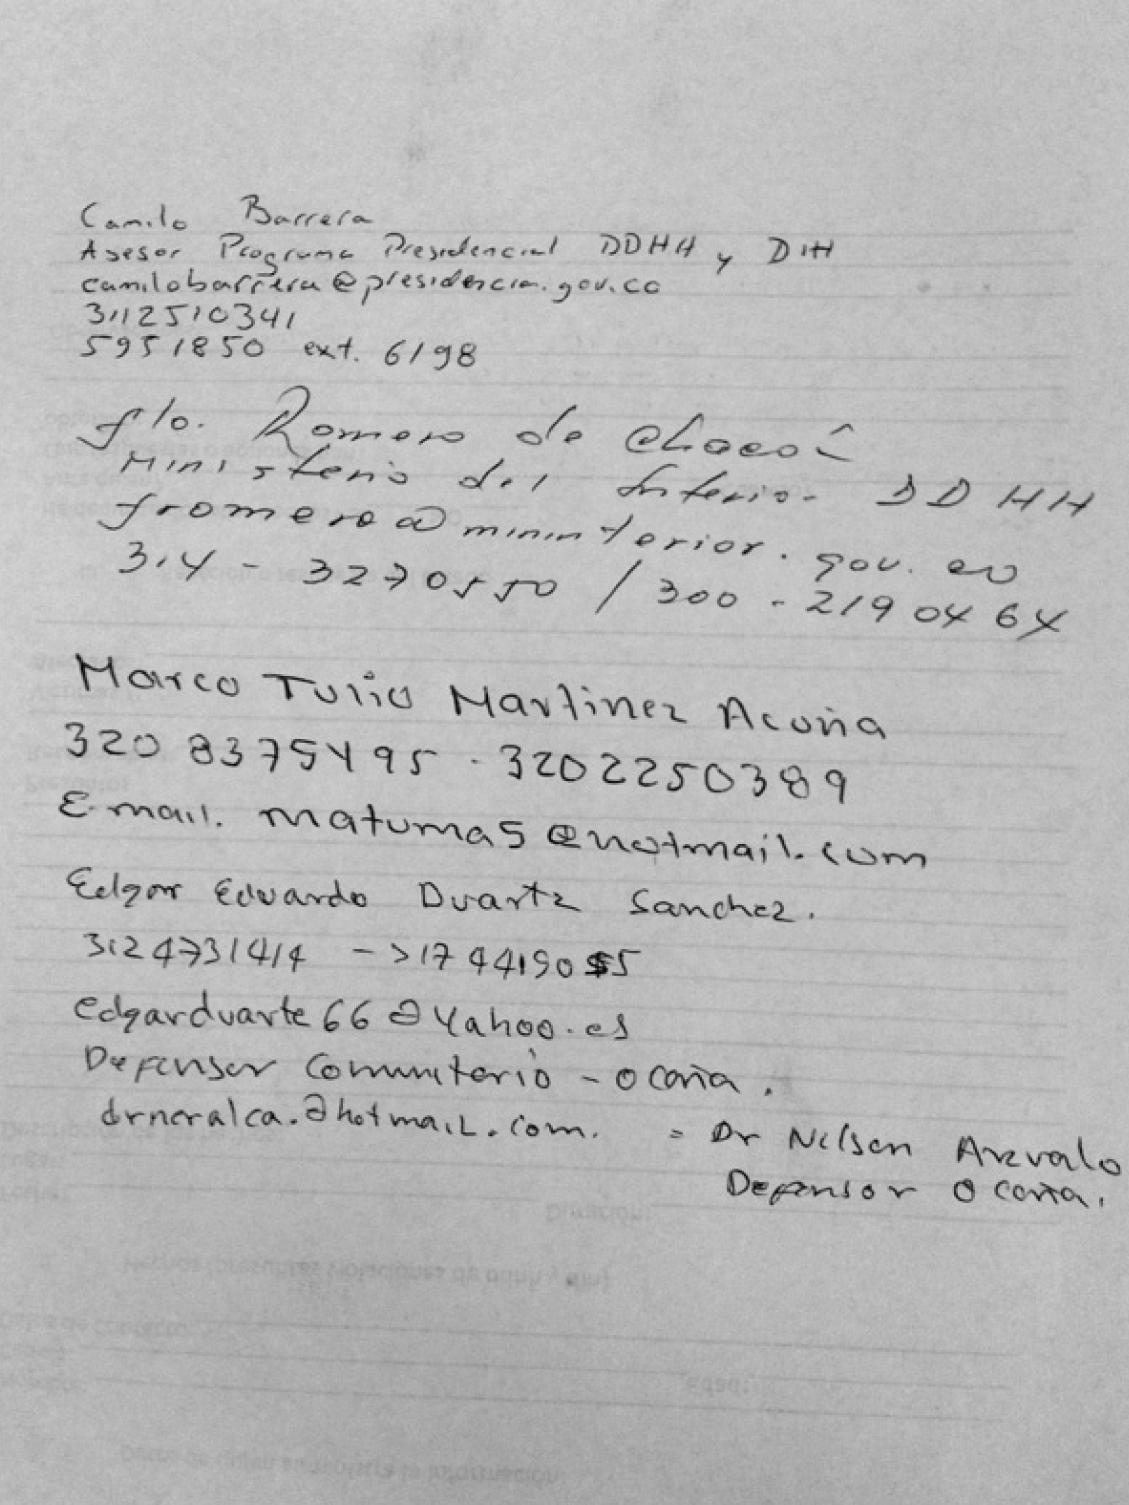 Camilo Barrera
Asesor Programa Presidencial DDHH y DIH
camilobarrera@presidencia.gov.co
3112510341
5951850 ext. 6198
flo. Romero de
Ministerio del Interior DDHH
fromero@mininterior.gov.co
314 - 3270550 / 300 - 2190464
Marco Tulio Martinez Acuña
320 8375495 - 3202250389
E-mail. matumas@hotmail.com
Edgar Eduardo Duarte Sanchez.
3124731414 - 3174419055
edgarduarte66@yahoo.es
Defensor Comunitario - Ocaña.
drneralca.@hotmail.com. = Dr Nelson Arevalo
Defensor Ocaña.